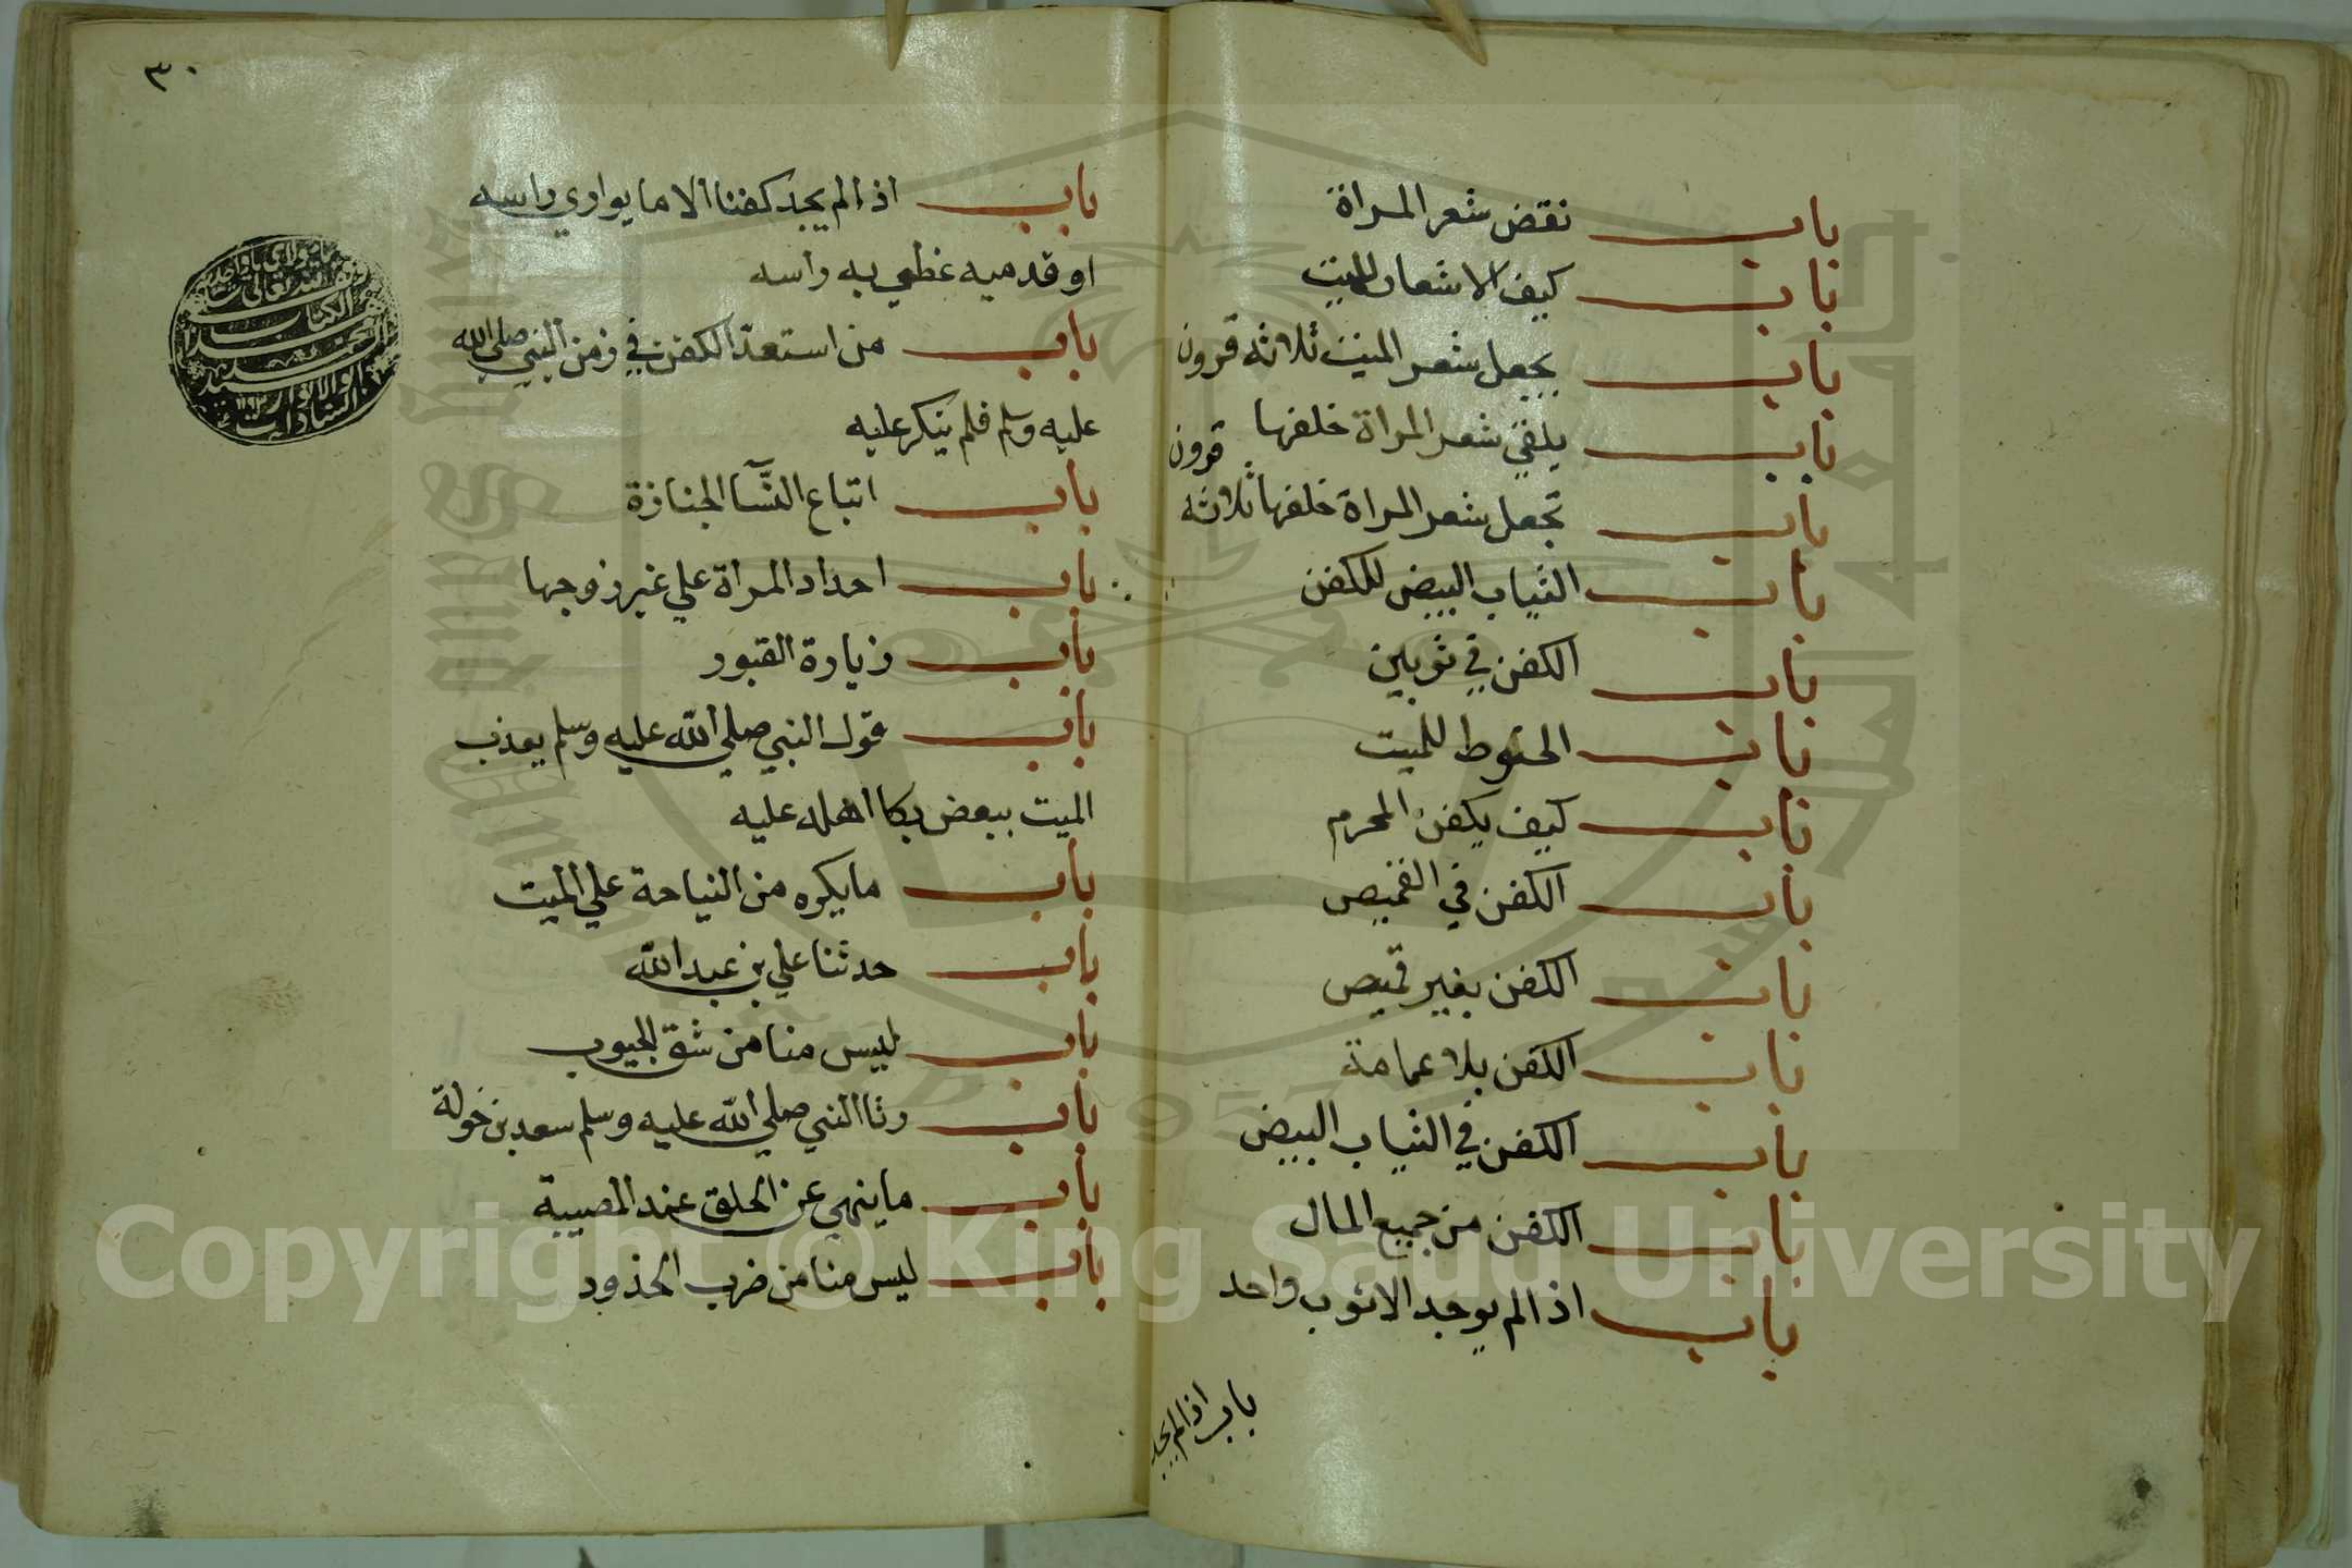 باب نقض شعر المراة
باب كيف الاشعار للميت
باب يجعل شعر الميت ثلاثه قرون
باب يلقي شعر المراة خلفها
باب تجعل شعر المراة خلفها ثلاثه قرون
باب الثياب البيض للكفن
باب الكفن في ثوبين
باب الحنوط للميت
باب كيف يكفن المحرم
باب الكفن في القميص
باب الكفن بغير قميص
باب الكفن بلا عمامة
باب الكفن في الثياب البيض
باب الكفن من جميع المال
باب اذا لم يوجد الا ثوب واحد
باب اذا لم يجد
٣٠
باب اذا لم يجد كفنا الا ما يواري راسه
او قدميه غطي به راسه
باب من استعد الكفن في زمن النبي صلي الله
عليه وسلم فلم ينكر عليه
باب اتباع النسآ الجنازة
باب احداد المراة علي غير زوجها
باب زيارة القبور
باب قول النبي صلي الله عليه وسلم يعذب
الميت ببعض بكا اهله عليه
باب ما يكره من النياحة علي الميت
باب حدثنا علي بن عبد الله
باب ليس منا من شق الجيوب
باب رثا النبي صلي الله عليه وسلم سعد بن خولة
باب ما ينهي عن الحلق عند المصيبة
باب ليس منا من ضرب الخدود
Copyright © King Saud University